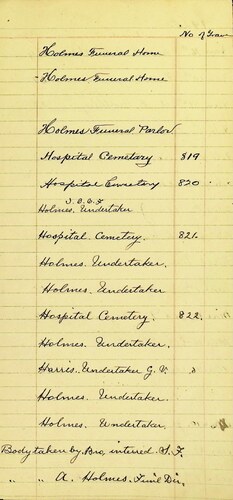 No of Grave
Holmes Funeral Home
Holmes Funeral Home
Holmes Funeral Parlor
Hospital Cemetary 819
Hospital Cemetery 820
I.O.O.F
Holmes. Undertaker
Hospital. Cemetery. 821.
Holmes. Undertaker.
Holmes. Undertaker
Hospital Cemetery. 822.
Holmes. Undertaker.
Harris. Undertaker
Holmes. Undertaker.
Holmes. Undertaker.
Body taken by Bro, intered S. F.
" " A. Holmes. Fun'l Dir.